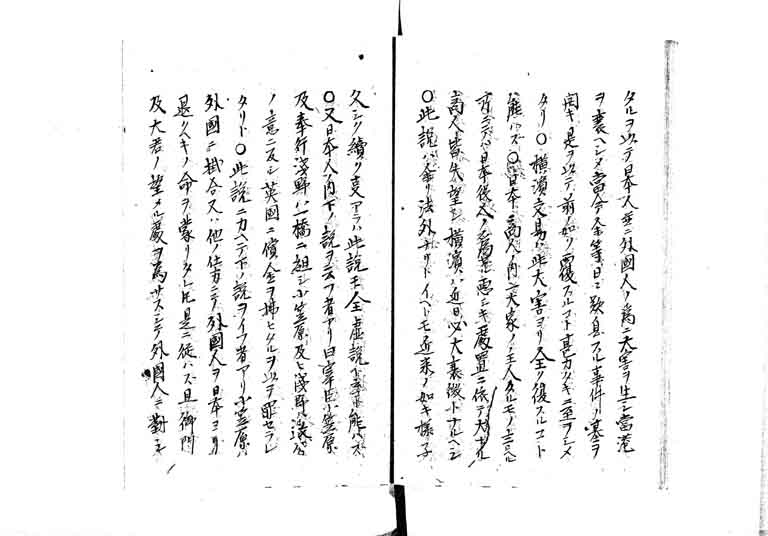 タルヲ以テ日本人並ニ外國人ノ為ニ大害ヲ生シ當港
ヲ衰ヘシメ當今余等日ニ歎息スル事件ノ基ヲ
開キ是ヲ以テノ前ノ如ク復スルコト甚カタキニ至ラシメ
タリ○横濱交易ハ此大害ヨリ全ク復スルコト
能ハズ○日本ニ商人ノ内ニ大家ノ主人タルモノ
方ニテハ日本役人ノ悪シキ處置ニ依テ大ナル
商人皆失望シ横濱ハ近日必大衰微トナルヘシ
○此説ハ余リ法外ナリトイヘドモ近来ノ如キ様子
久シク續ク叓アラハ此説モ全虚説ト云フ能ハズ
○又日本人ノ内下ノ説ヲ云フ者アリ曰宰臣小笠原
及奉行浅野ハ一橋ニ組シ小笠原及ヒ浅野ハ議会
ノ意ニ反シ英國ニ償金ヲ拂ヒタルヲ以テ罪セラレ
タリト○此説ニカヘテ下ノ説ヲイフ者アリ小笠原ハ
外國ニ掛合又ハ他ノ仕方ニテ外國人ヲ日本ヨリ
退クヘキノ命ヲ蒙リタレ𪜈是ニ従ハズ且御門
及大君ノ望メル處ヲ為サスシテ外國人ニ對シ